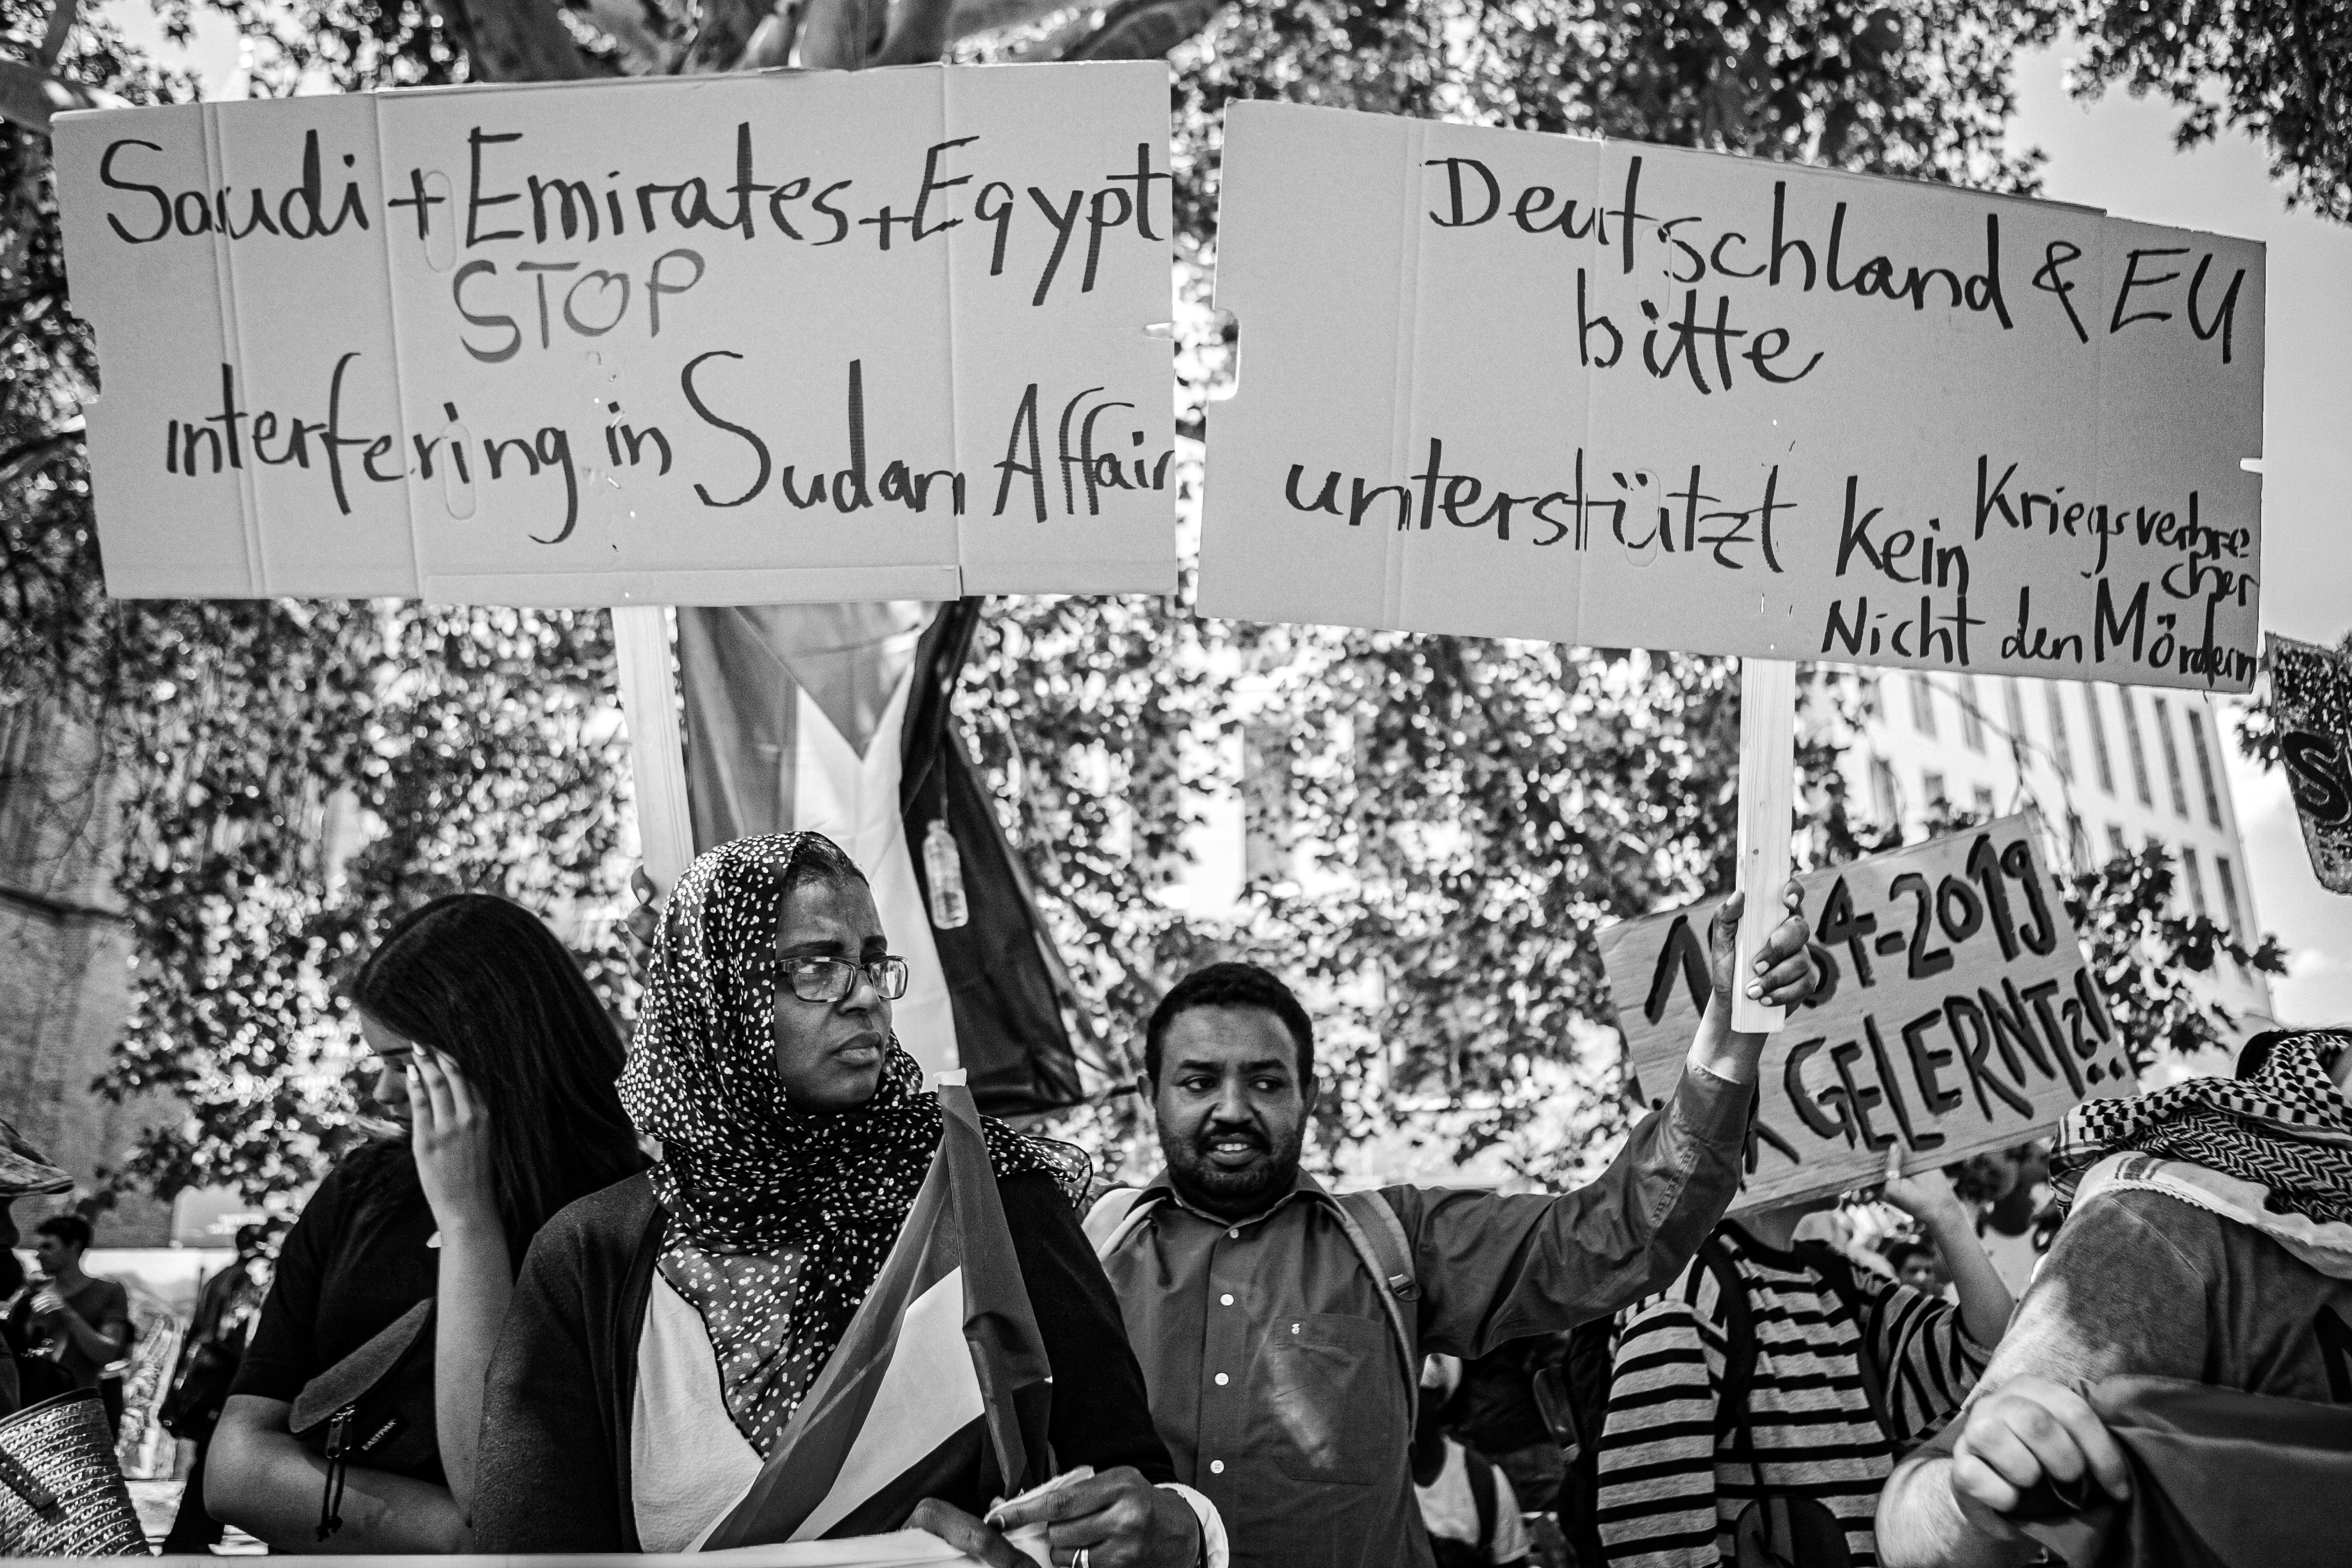 Saudi + Emirates + Egypt
STOP
interfering in Sudan Affair
Deutschland & EU
bitte
unterstützt kein Kriegsverbre
cher
Nicht den Mördern
4-2019
GELERNT?!
EASTPAK